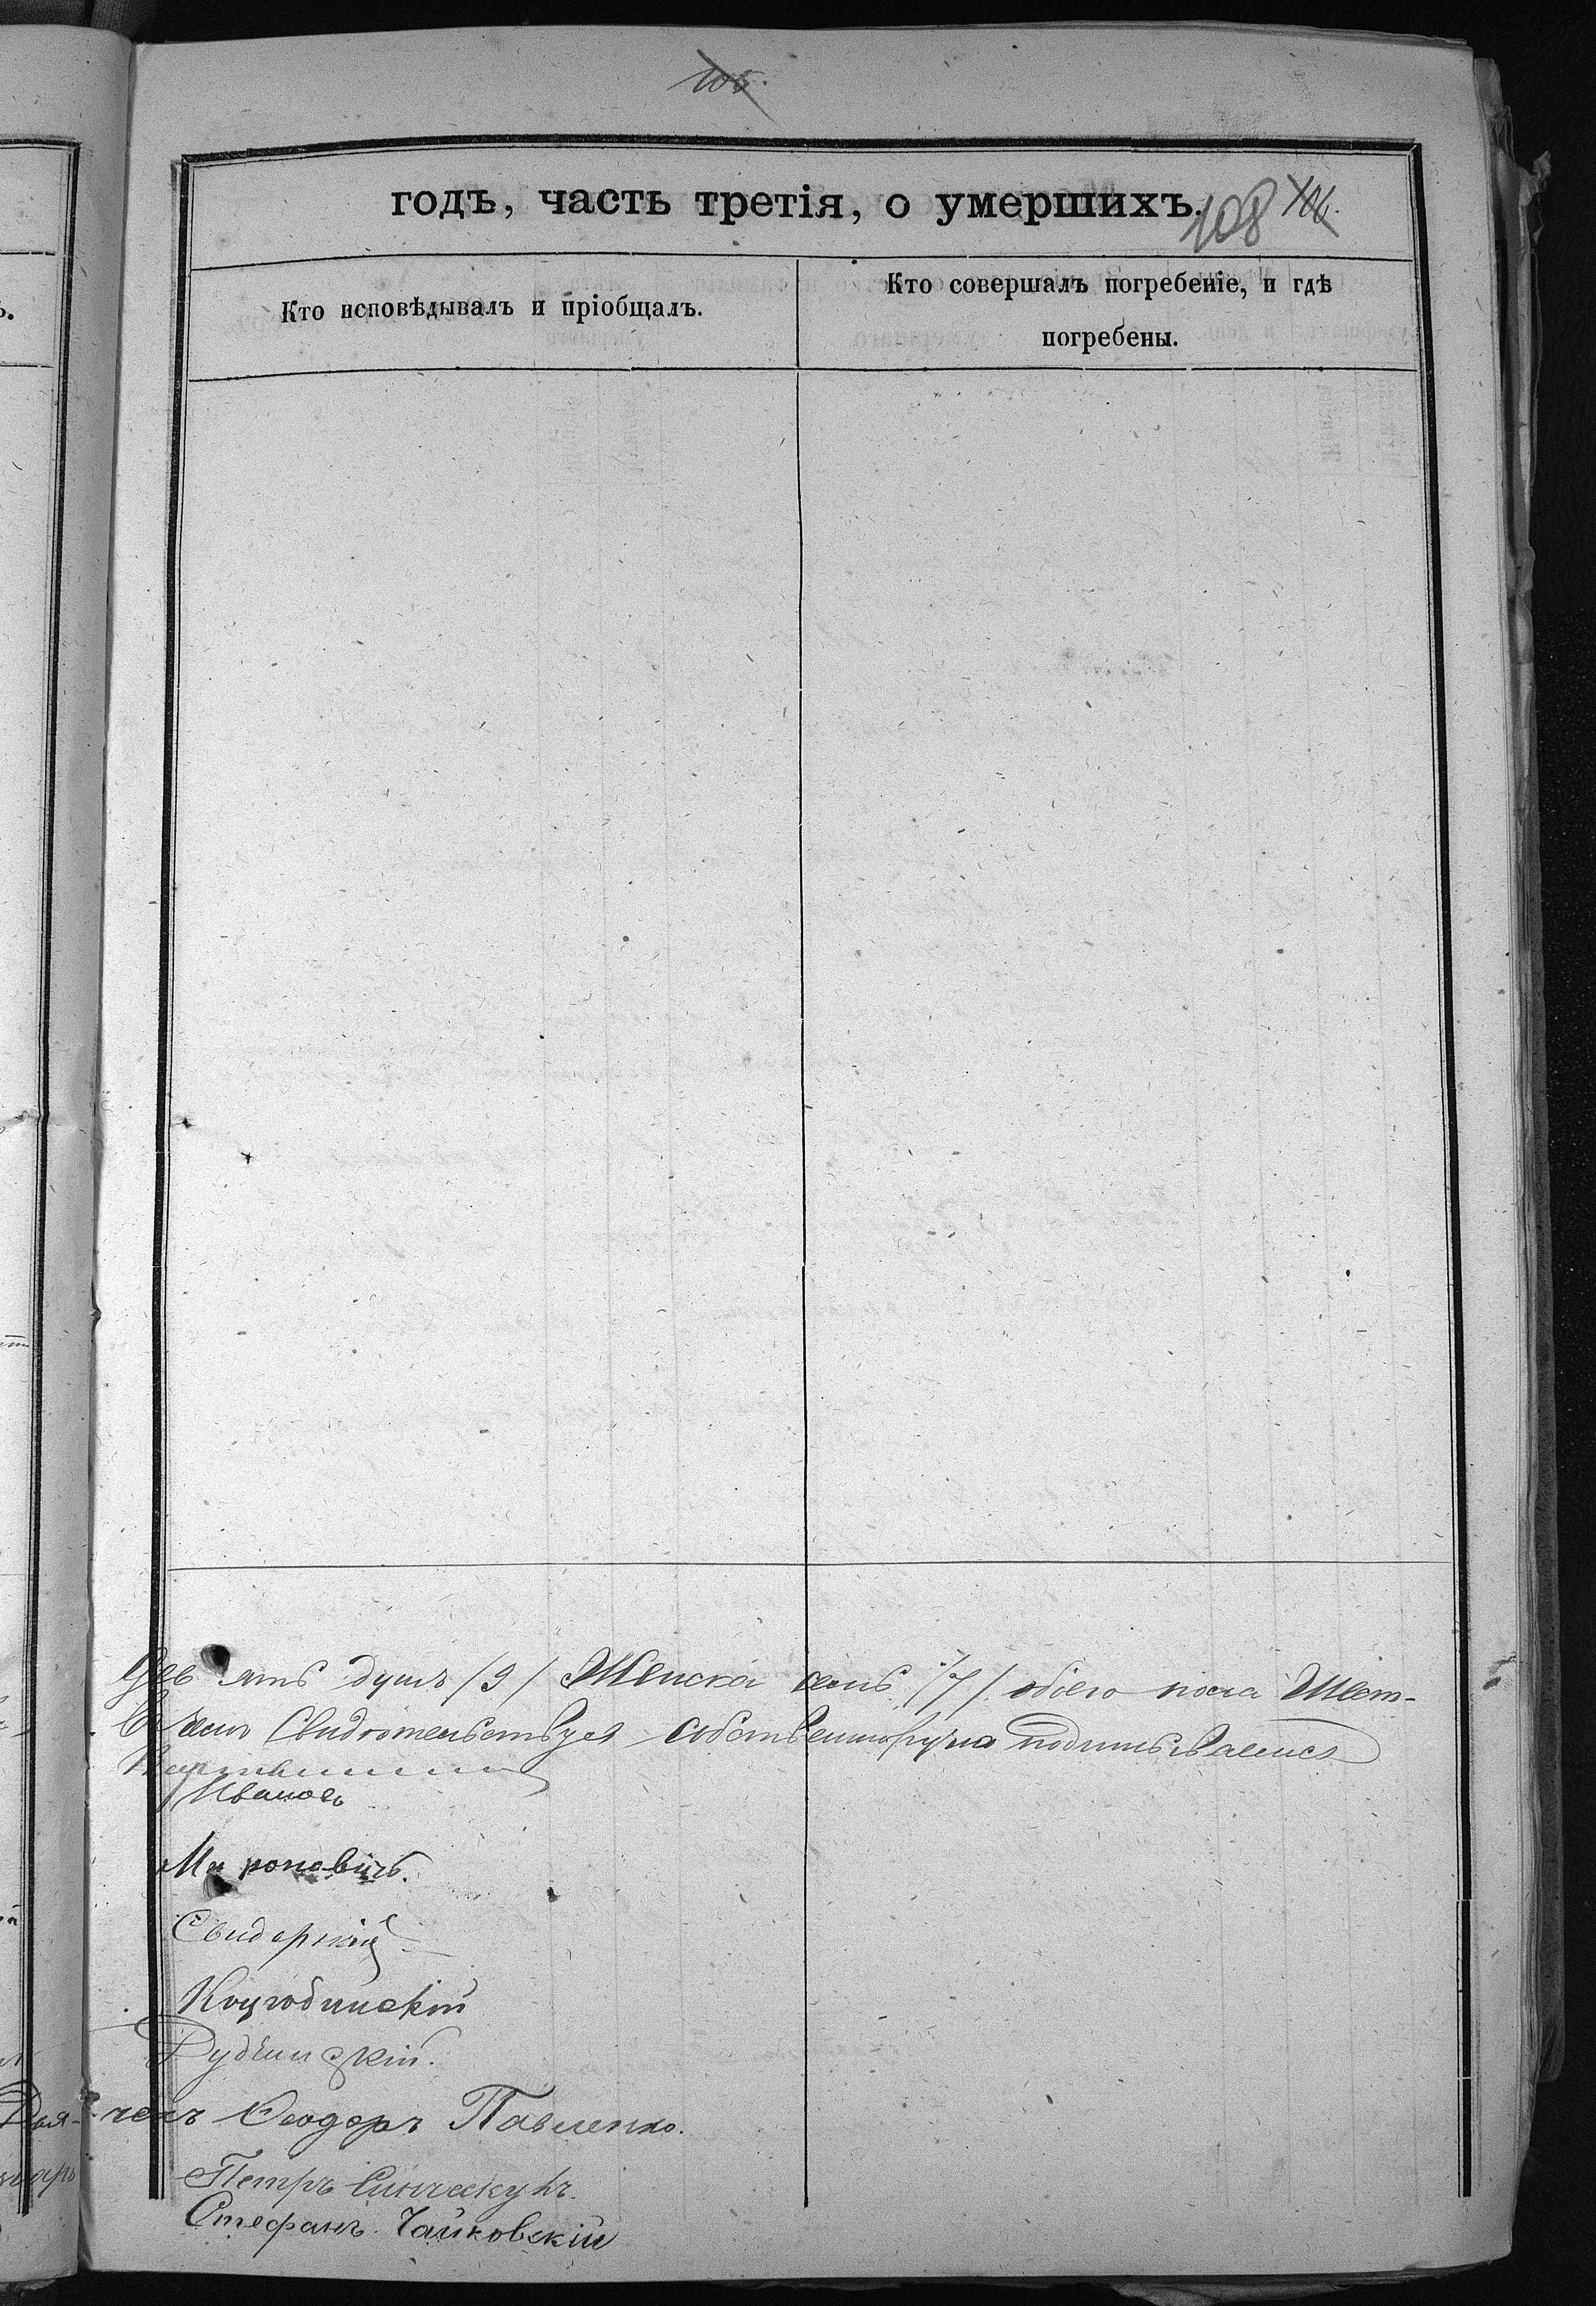 106.
годъ, часть третія, о умершихъ.
108 106.
Кто исповѣдывалъ и пріобщалъ.
Кто совершалъ погребеніе, и гдѣ
погребены.
Девять душъ /9/ Женска семь /7/. обоего пола Шест-
В чемъ Свидѣтельствуя собственноручно подписываемся
Ивановъ
Мироновичъ.
Свидерскій
Коцюбинскій
Рудчинскій.
чекъ Ѳеодоръ Павленко.
Петръ
Стефанъ Чайковскій